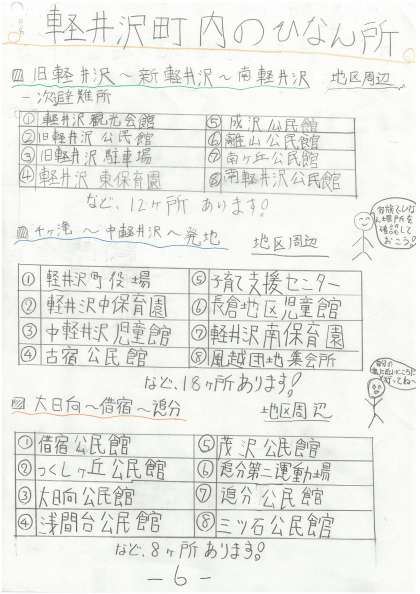 軽井沢町内のひなん所
旧軽井沢～新軽井沢～南軽井沢 地区周辺
一次避難所
① 軽井沢観光会館 ⑤ 成沢公民館
② 旧軽井沢公民館 ⑥ 離山公民館
③ 旧軽井沢駐車場 ⑦ 南ヶ丘公民館
④ 軽井沢東保育園 ⑧ 南軽井沢公民館
など、12ヶ所あります!
家族でひなん場所を確認しておこう!
千ヶ滝～中軽井沢～発地 地区周辺
① 軽井沢町役場 ⑤ 子育て支援センター
② 軽井沢中保育園 ⑥ 長倉地区児童館
③ 中軽井沢児童館 ⑦ 軽井沢南保育園
④ 古宿公民館 ⑧ 風越団地集会所
など、18ヶ所あります!
自分の
行ってね
大日向～借宿～追分 地区周辺
① 借宿公民館 ⑤ 茂沢公民館
② つくしヶ丘公民館 ⑥ 追分第二運動場
③ 大日向公民館 ⑦ 追分公民館
④ 浅間台公民館 ⑧ 三ツ石公民館
など、8ヶ所あります!
－6－